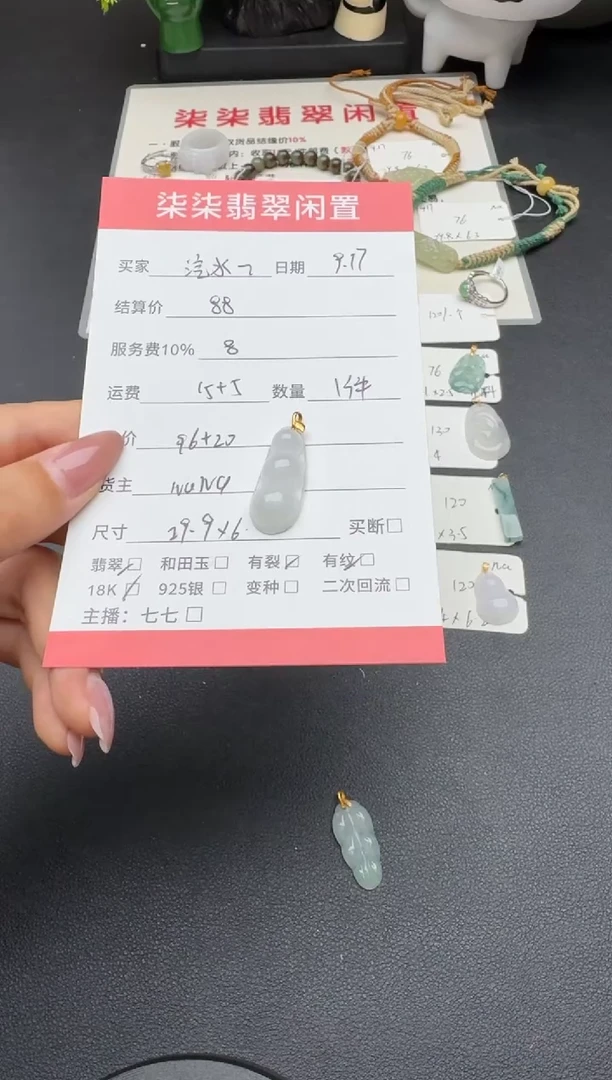 柒柒翡翠闲置
10%
76
76
柒柒翡翠闲置
买家 汽水 日期 9.17
结算价 88
服务费10% 8
运费 15+5 数量 1件
价 96+20
货主 NaNa
尺寸 29.9×6. 买断□
翡翠□ 和田玉□ 有裂□ 有纹□
18K□ 925银□ 变种□ 二次回流□
主播：七七□
76
120
4
120
×3.5
120